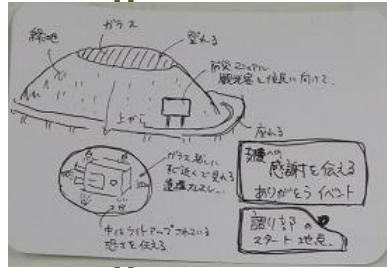 ガラス
緑地
登れる
防災マニュアル
観光客と住民に向けて、
上から
座れる
ガラス越しに
真近くで見れる
中はライトアップされている
恐さを伝える
支援への
感謝を伝える
ありがとうイベント
語り部の
スタート地点。